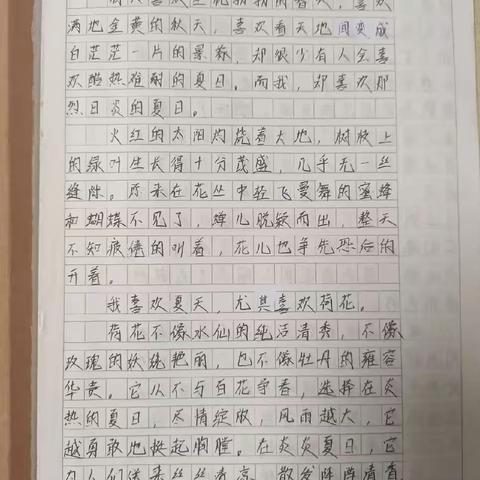 的春天，喜欢
满地金黄的秋天，喜欢看天地间变成
白茫茫一片的景称，却很少有人会喜
欢酷热难耐的夏日。而我，却喜欢那
烈日炎的夏日。
火红的太阳灼烧着大地，树枝上
的绿叶生长得十分茂盛，几乎无一丝
缝隙。原来在花丛中轻飞曼舞的蜜蜂
和蝴蝶不见了，蝉儿脱颖而出，整天
不知疲倦的叫着，花儿也争先恐后的
开着。
我喜欢夏天，尤其喜欢荷花。
荷花不像水仙的纯洁清秀，不像
玫瑰的妖娆艳丽，也不像牡丹的雍容
华贵。它从不与百花争春，选择在炎
热的夏日，尽情绽放，风雨越大，它
越勇敢地挺起胸膛。在炎炎夏日，它
为人们送来丝丝清凉，散发阵阵清香